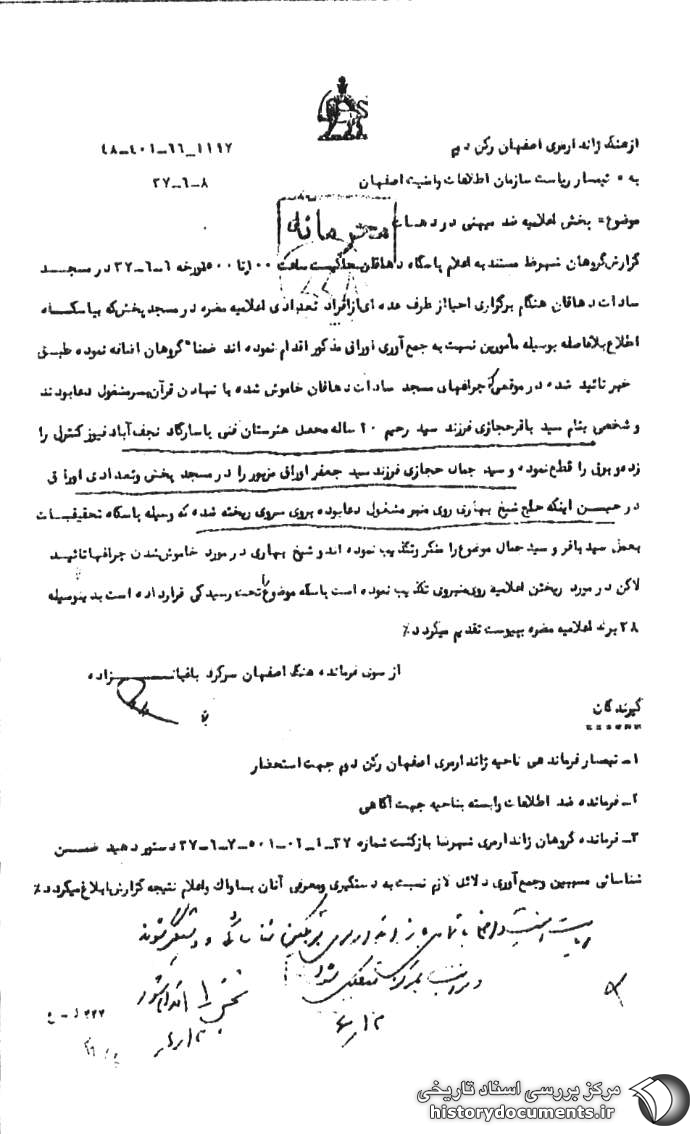 از هنگ ژاندارمری اصفهان رکن دوم ۱۱۱۷-۶۶-۴۰۱-۴۸
به = تیمسار ریاست سازمان اطلاعات وامنیت اصفهان ۸-۶-۳۷
موضوع = پخش اعلامیه ضد میهنی در دهاقان
محرمانه
گزارش گروهان شهرضا مستند به اعلام پاسگاه دهاقان ساعت ۱۰۰ تا ۵۰۰ مورخه ۶-۶-۳۷ در مسجد
سادات دهاقان هنگام برگزاری احیا از طرف عده ای از افراد تعدادی اعلامیه مضره در مسجد پخش که پاسگاه
اطلاع بلافاصله بوسیله مأمورین نسبت به جمع آوری اوراق مذکور اقدام نموده اند ضمنا" گروهان اضافه نموده طبق
خبر تائید شده در موقعی که چراغهای مسجد سادات دهاقان خاموش شده با نهادن قرآن بسر مشغول دعا بودند
و شخصی بنام سید باقر حجازی فرزند سید رحیم ۲۰ ساله محصل هنرستان فنی پاسارگاد نجف آباد فیوز کنترل را
زده و برق را قطع نموده و سید جمال حجازی فرزند سید جعفر اوراق مزبور را در مسجد پخش و تعدادی اوراق
در حین اینکه حاج شیخ بهاری روی منبر مشغول دعا بوده بروی سروی ریخته شده که وسیله پاسگاه تحقیقات
بعمل سید باقر و سید جمال موضوع را منکر و تکذیب نموده اند و شیخ بهاری در مورد خاموش شدن چراغها تائید
لاکن در مورد ریختن اعلامیه روی منبر وی تکذیب نموده است پاسگاه موضوع را تحت رسیدگی قرار داده است بدینوسیله
۲۸ برگ اعلامیه مضره بپیوست تقدیم میگردد٪
از سوی فرمانده هنگ اصفهان سرگرد باغبانزاده
گیرندگان
۱- تیمسار فرماندهی ناحیه ژاندارمری اصفهان رکن دوم جهت استحضار
۲- فرمانده ضد اطلاعات وابسته بناحیه جهت آگاهی
۳- فرمانده گروهان ژاندارمری شهرضا بازگشت شماره ۳۷-۴-۰۲-۵۰۱-۷-۶-۳۷ دستور دهید ضمن
شناسائی مسببین و جمع آوری دلائل لازم نسبت به دستگیری و معرفی آنان بساواک و اعلام نتیجه گزارش یا ابلاغ میگردد٪
ریاست امنیت داخلی با تماس با ژاندارمری مرتکبین شناسائی و دستگیر شوند
و مراتب بمرکز منعکس شود
بخش ۱ اقدام شود
مرکز بررسی اسناد تاریخی
historydocuments.ir